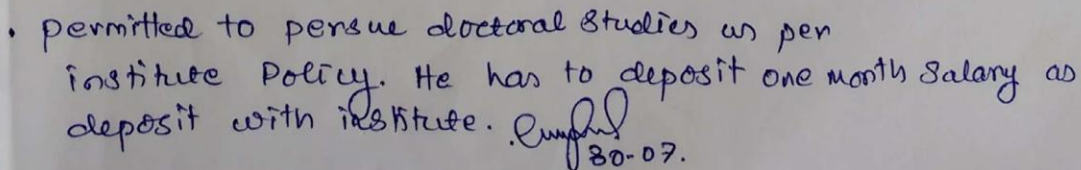 • permitted to persue doctoral studies as per
institute Policy. He has to deposit one month Salary as
deposit with institute.
30-07.